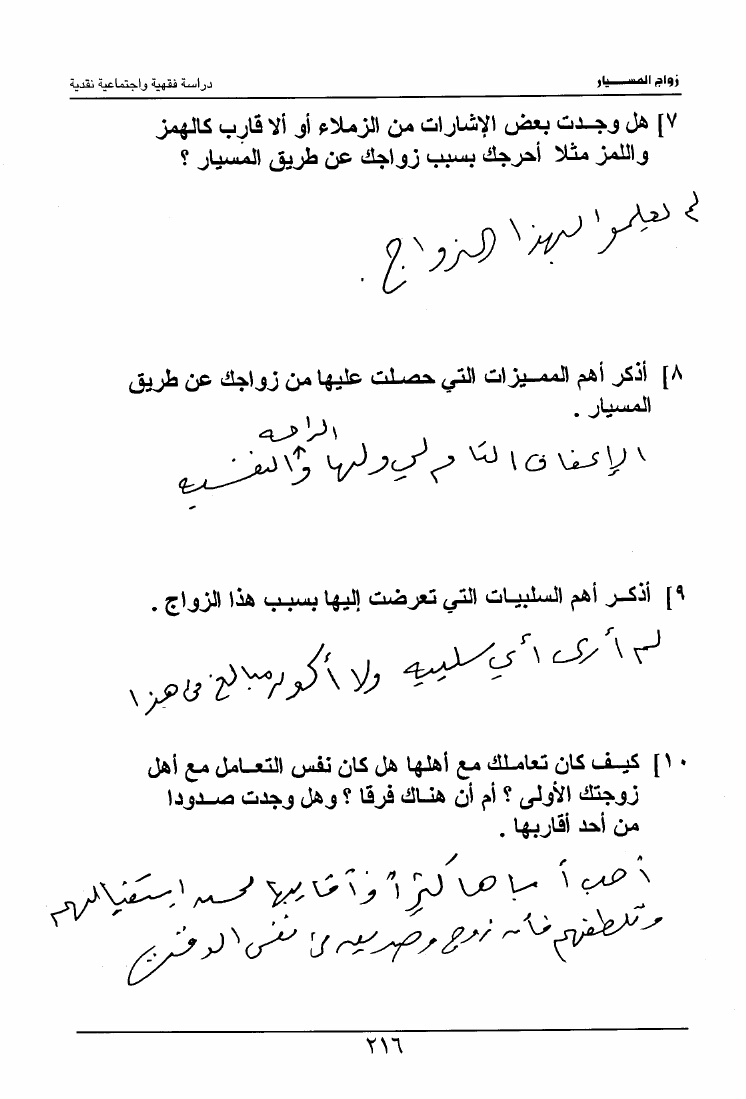 زواج المسيار
دراسة فقهية واجتماعية نقدية
٧] هل وجدت بعض الإشارات من الزملاء أو ألا قارب كالهمز
واللمز مثلا أحرجك بسبب زواجك عن طريق المسيار ؟
لم يعلموا بهذا الزواج .
٨] أذكر أهم المميزات التي حصلت عليها من زواجك عن طريق
المسيار .
الراحه
الإعفاف التام لي ولها و النفسيه
٩] أذكر أهم السلبيات التي تعرضت إليها بسبب هذا الزواج .
لم أرى أي سلبيه ولا أكون مبالغ في هذا
١٠] كيف كان تعاملك مع أهلها هل كان نفس التعامل مع أهل
زوجتك الأولى ؟ أم أن هناك فرقا ؟ وهل وجدت صدودا
من أحد أقاربها .
أحب أباها كثيرًا وأقاربها لحسن استقبالهم
وتلطفهم فأنا زوج وصديق في نفس الوقت
٢١٦